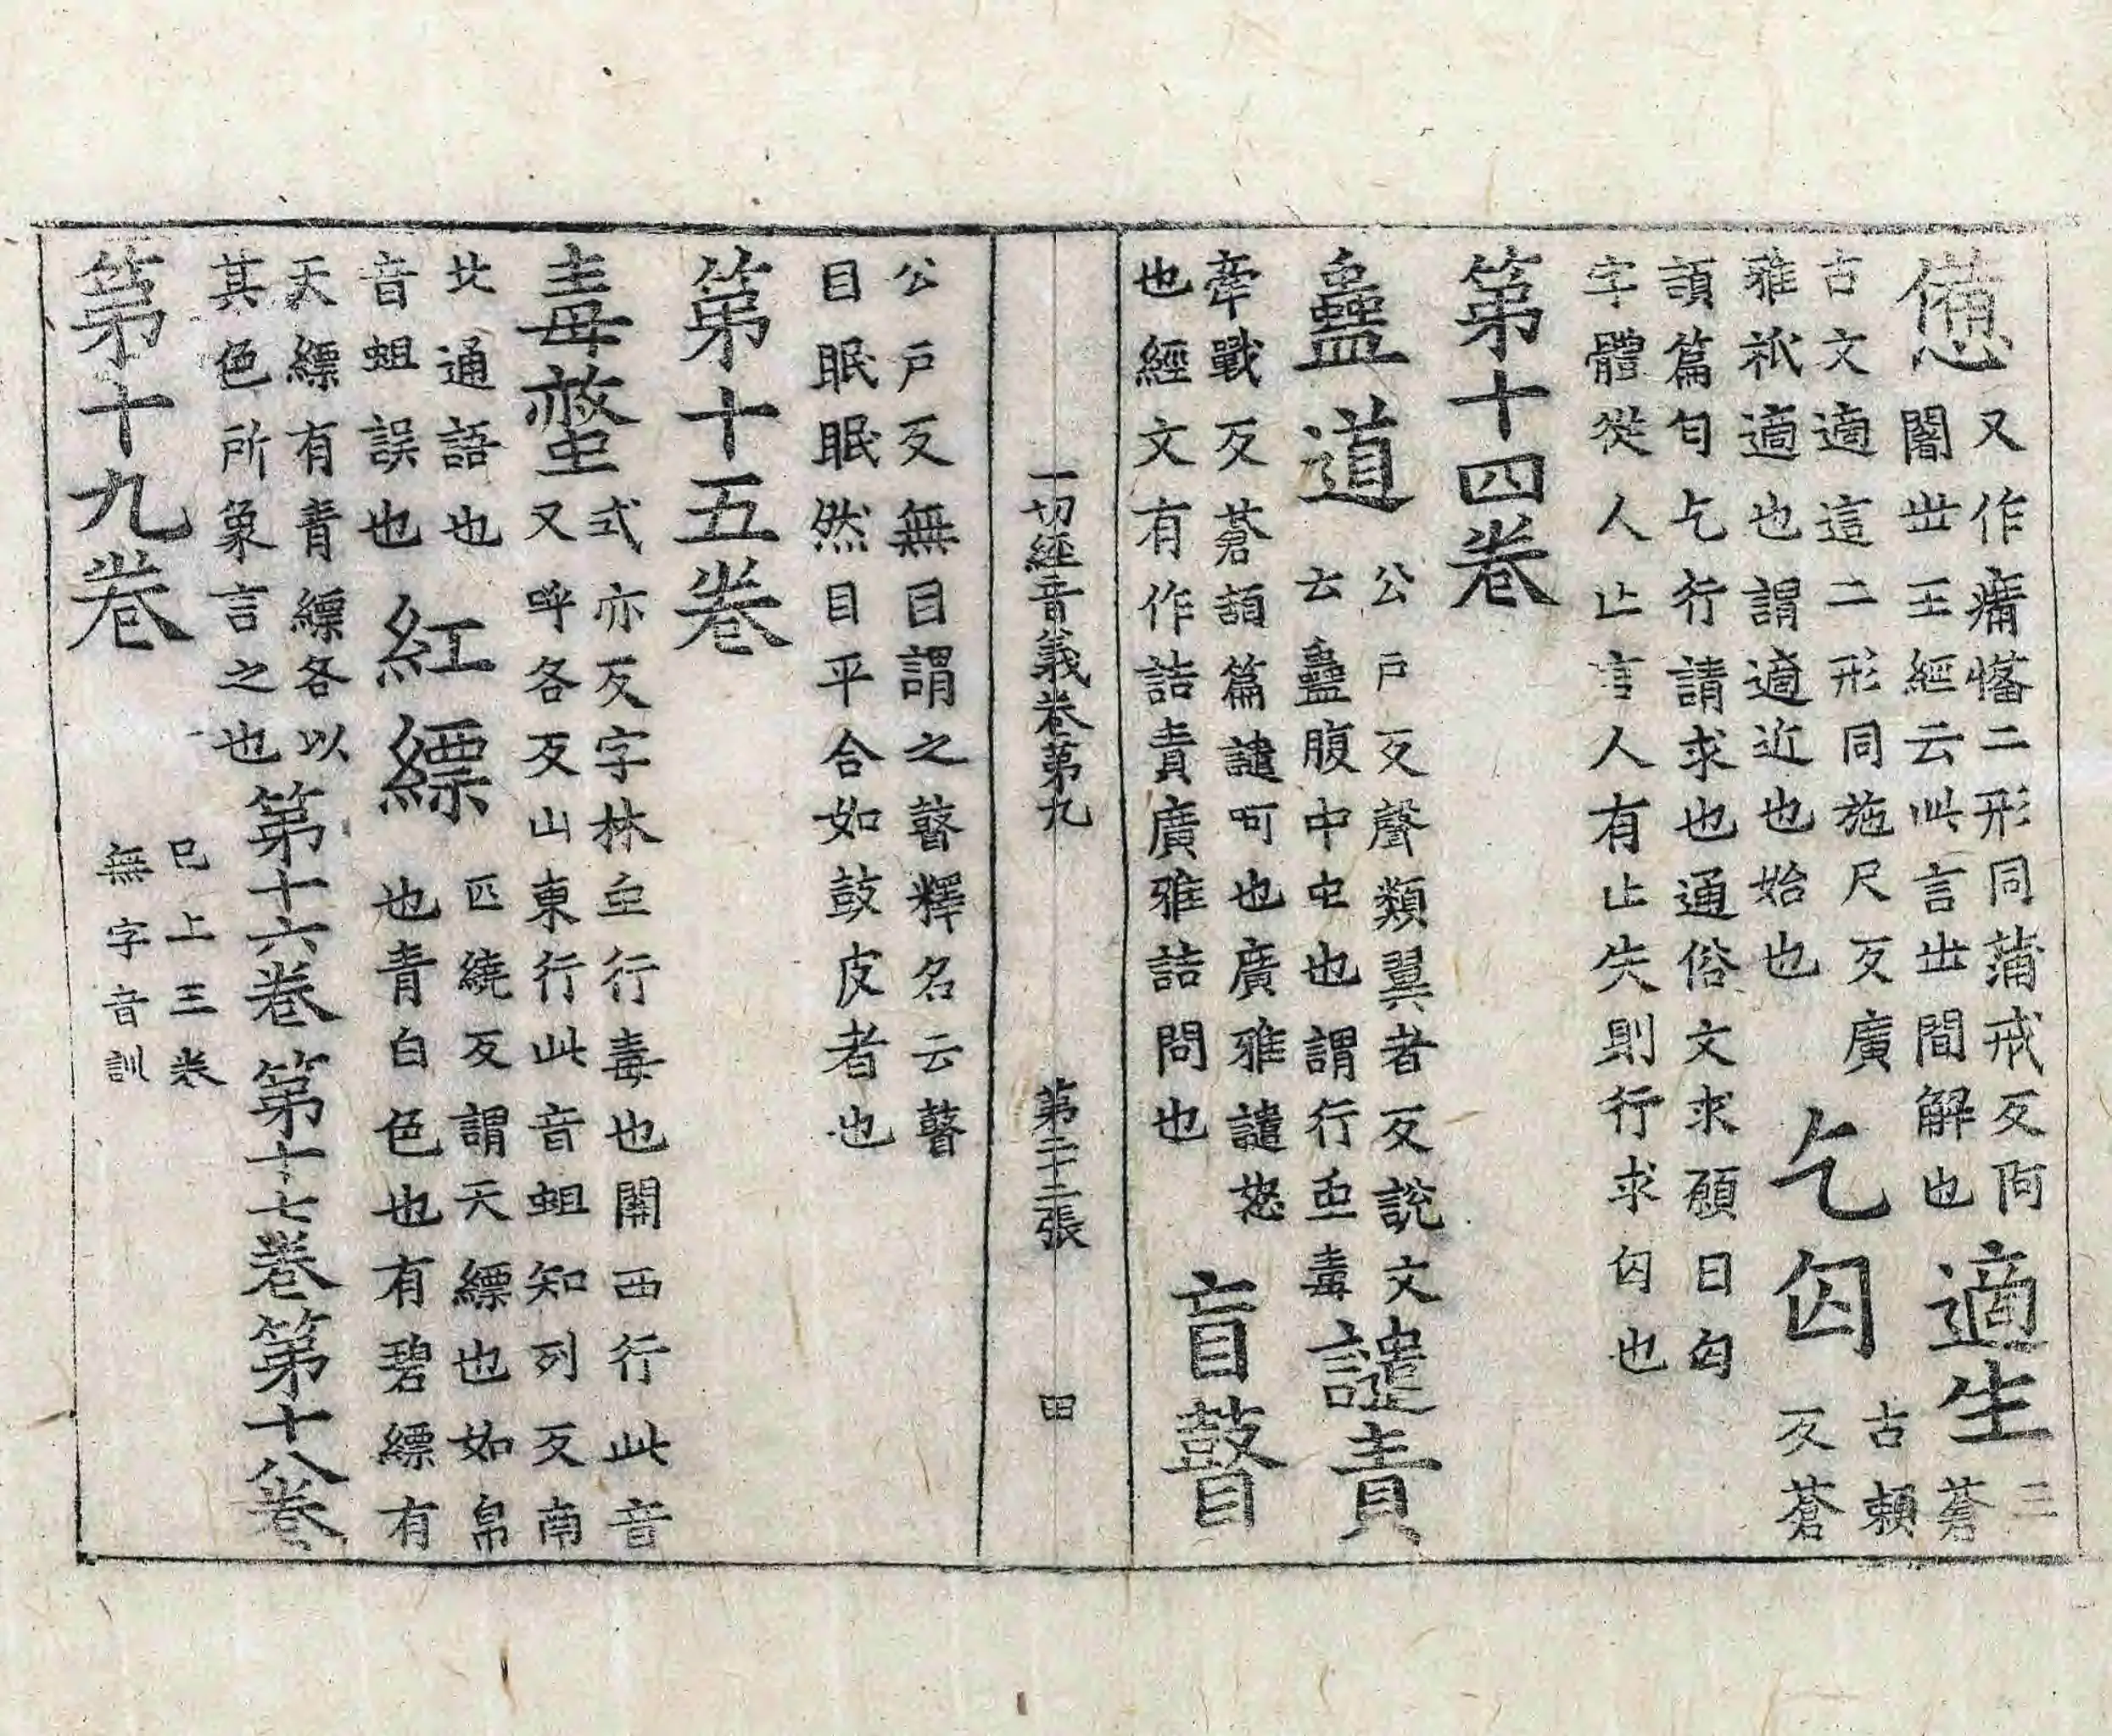 憊
又作㾱𢥞二形同蒲戒反阿
闍世王經云此言世間解也
適生
三
蒼
古文適這二形同施尺反廣
雅祇適也謂適近也始也
乞匃
古頼
反蒼
頡篇匃乞行請求也通俗文求願曰匃
字體從人亾言人有亾失則行求匃也
第十四卷
蠱道
公戶反聲類翼者反說文
云蠱腹中虫也謂行虫毒
譴責
牽戰反蒼頡篇譴呵也廣雅譴怒
也經文有作詰責廣雅詰問也
盲瞽
公戶反無目謂之瞽釋名云瞽
目眠眠然目平合如鼓皮者也
一切經音義卷第九
第二十二張
田
第十五卷
毒螫
式亦反字林虫行毒也關西行此音
又呼各反山東行此音蛆知列反南
北通語也
音蛆誤也
紅縹
匹繞反謂天縹也如帛
也青白色也有碧縹有
天縹有青縹各以
其色所象言之也
第十六卷第十七卷第十八卷
已上三卷
無字音訓
第十九卷